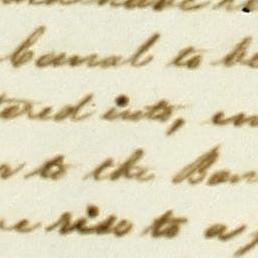 have
Canal to be
tered into, en
r to the Ban
rise to a